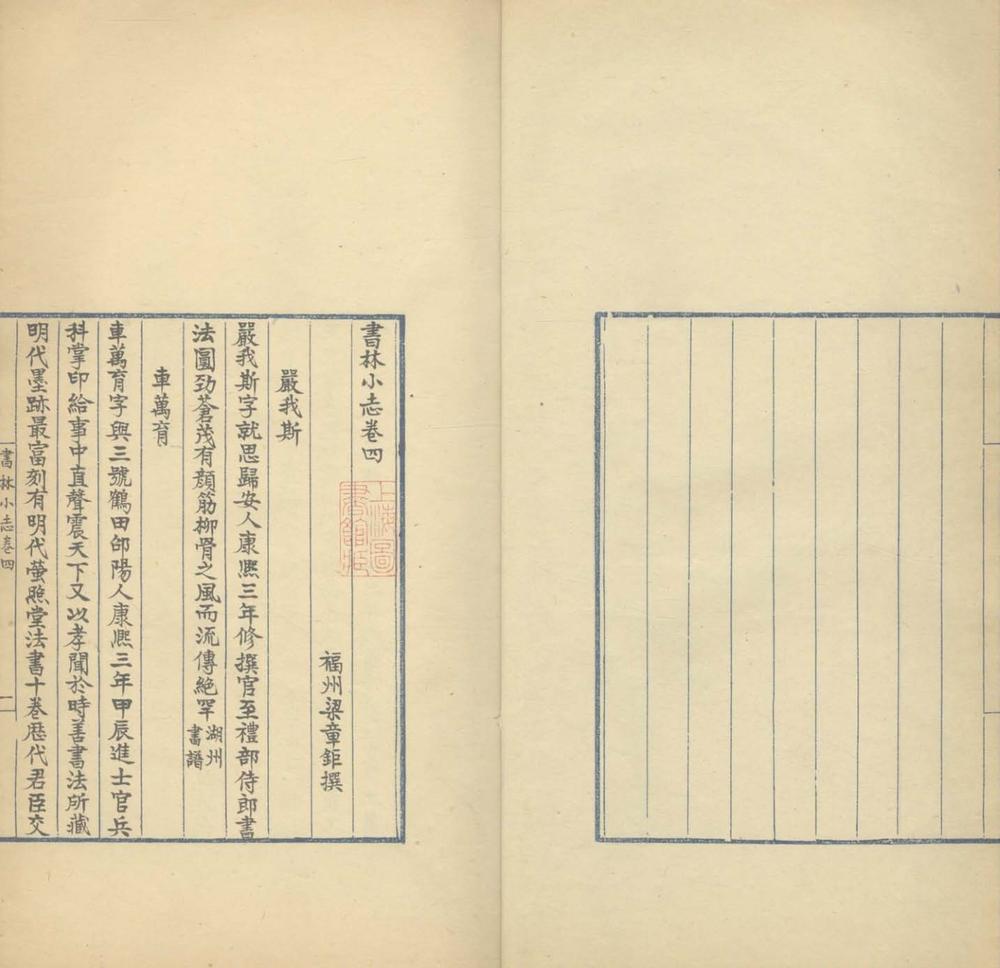 書林小志卷四
福州梁章鉅撰
嚴我斯
嚴我斯字就思歸安人康熙三年修撰官至禮部侍郎書
法圓勁蒼茂有顏筋柳骨之風而流傳絕罕湖州
書譜
車萬育
車萬育字與三號鶴田邵陽人康熙三年甲辰進士官兵
科掌印給事中直聲震天下又以孝聞於時善書法所藏
明代墨跡最富刻有明代螢照堂法書十卷歷代君臣交
書林小志卷四
一
上海圖
書館藏